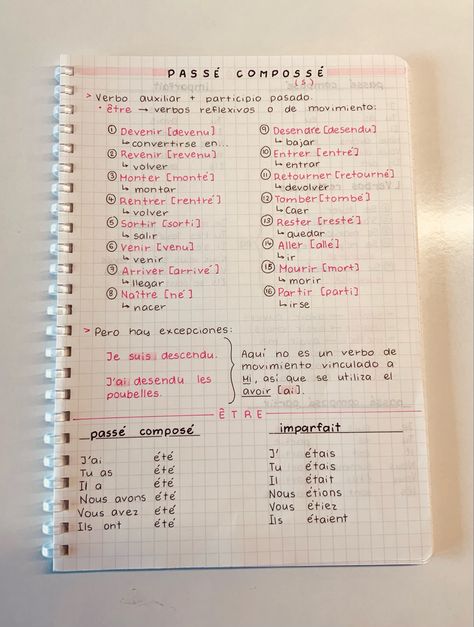 PASSÉ COMPOSSÉ
(s)
> Verbo auxiliar + participio pasado.
• être → verbos reflexivos o de movimiento:
① Devenir [devenu]
↳ convertirse en...
② Revenir [revenu]
↳ volver
③ Monter [monté]
↳ montar
④ Rentrer [rentré]
↳ volver
⑤ Sortir [sorti]
↳ salir
⑥ Venir [venu]
↳ venir
⑦ Arriver [arrivé]
↳ llegar
⑧ Naître [né]
↳ nacer
⑨ Desendre [desendu]
↳ bajar
⑩ Entrer [entré]
↳ entrar
⑪ Retourner [retourné]
↳ devolver
⑫ Tomber [tombé]
↳ Caer
⑬ Rester [resté]
↳ quedar
⑭ Aller [allé]
↳ ir
⑮ Mourir [mort]
↳ morir
⑯ Partir [parti]
↳ irse
> Pero hay excepciones:
Je suis descendu.
J'ai desendu les
poubelles.
Aquí no es un verbo de
movimiento vinculado a
mi, así que se utiliza el
avoir [ai].
ÊTRE
passé composé
J'ai été
Tu as été
Il a été
Nous avons été
Vous avez été
Ils ont été
imparfait
J' étais
Tu étais
Il était
Nous étions
Vous étiez
Ils étaient